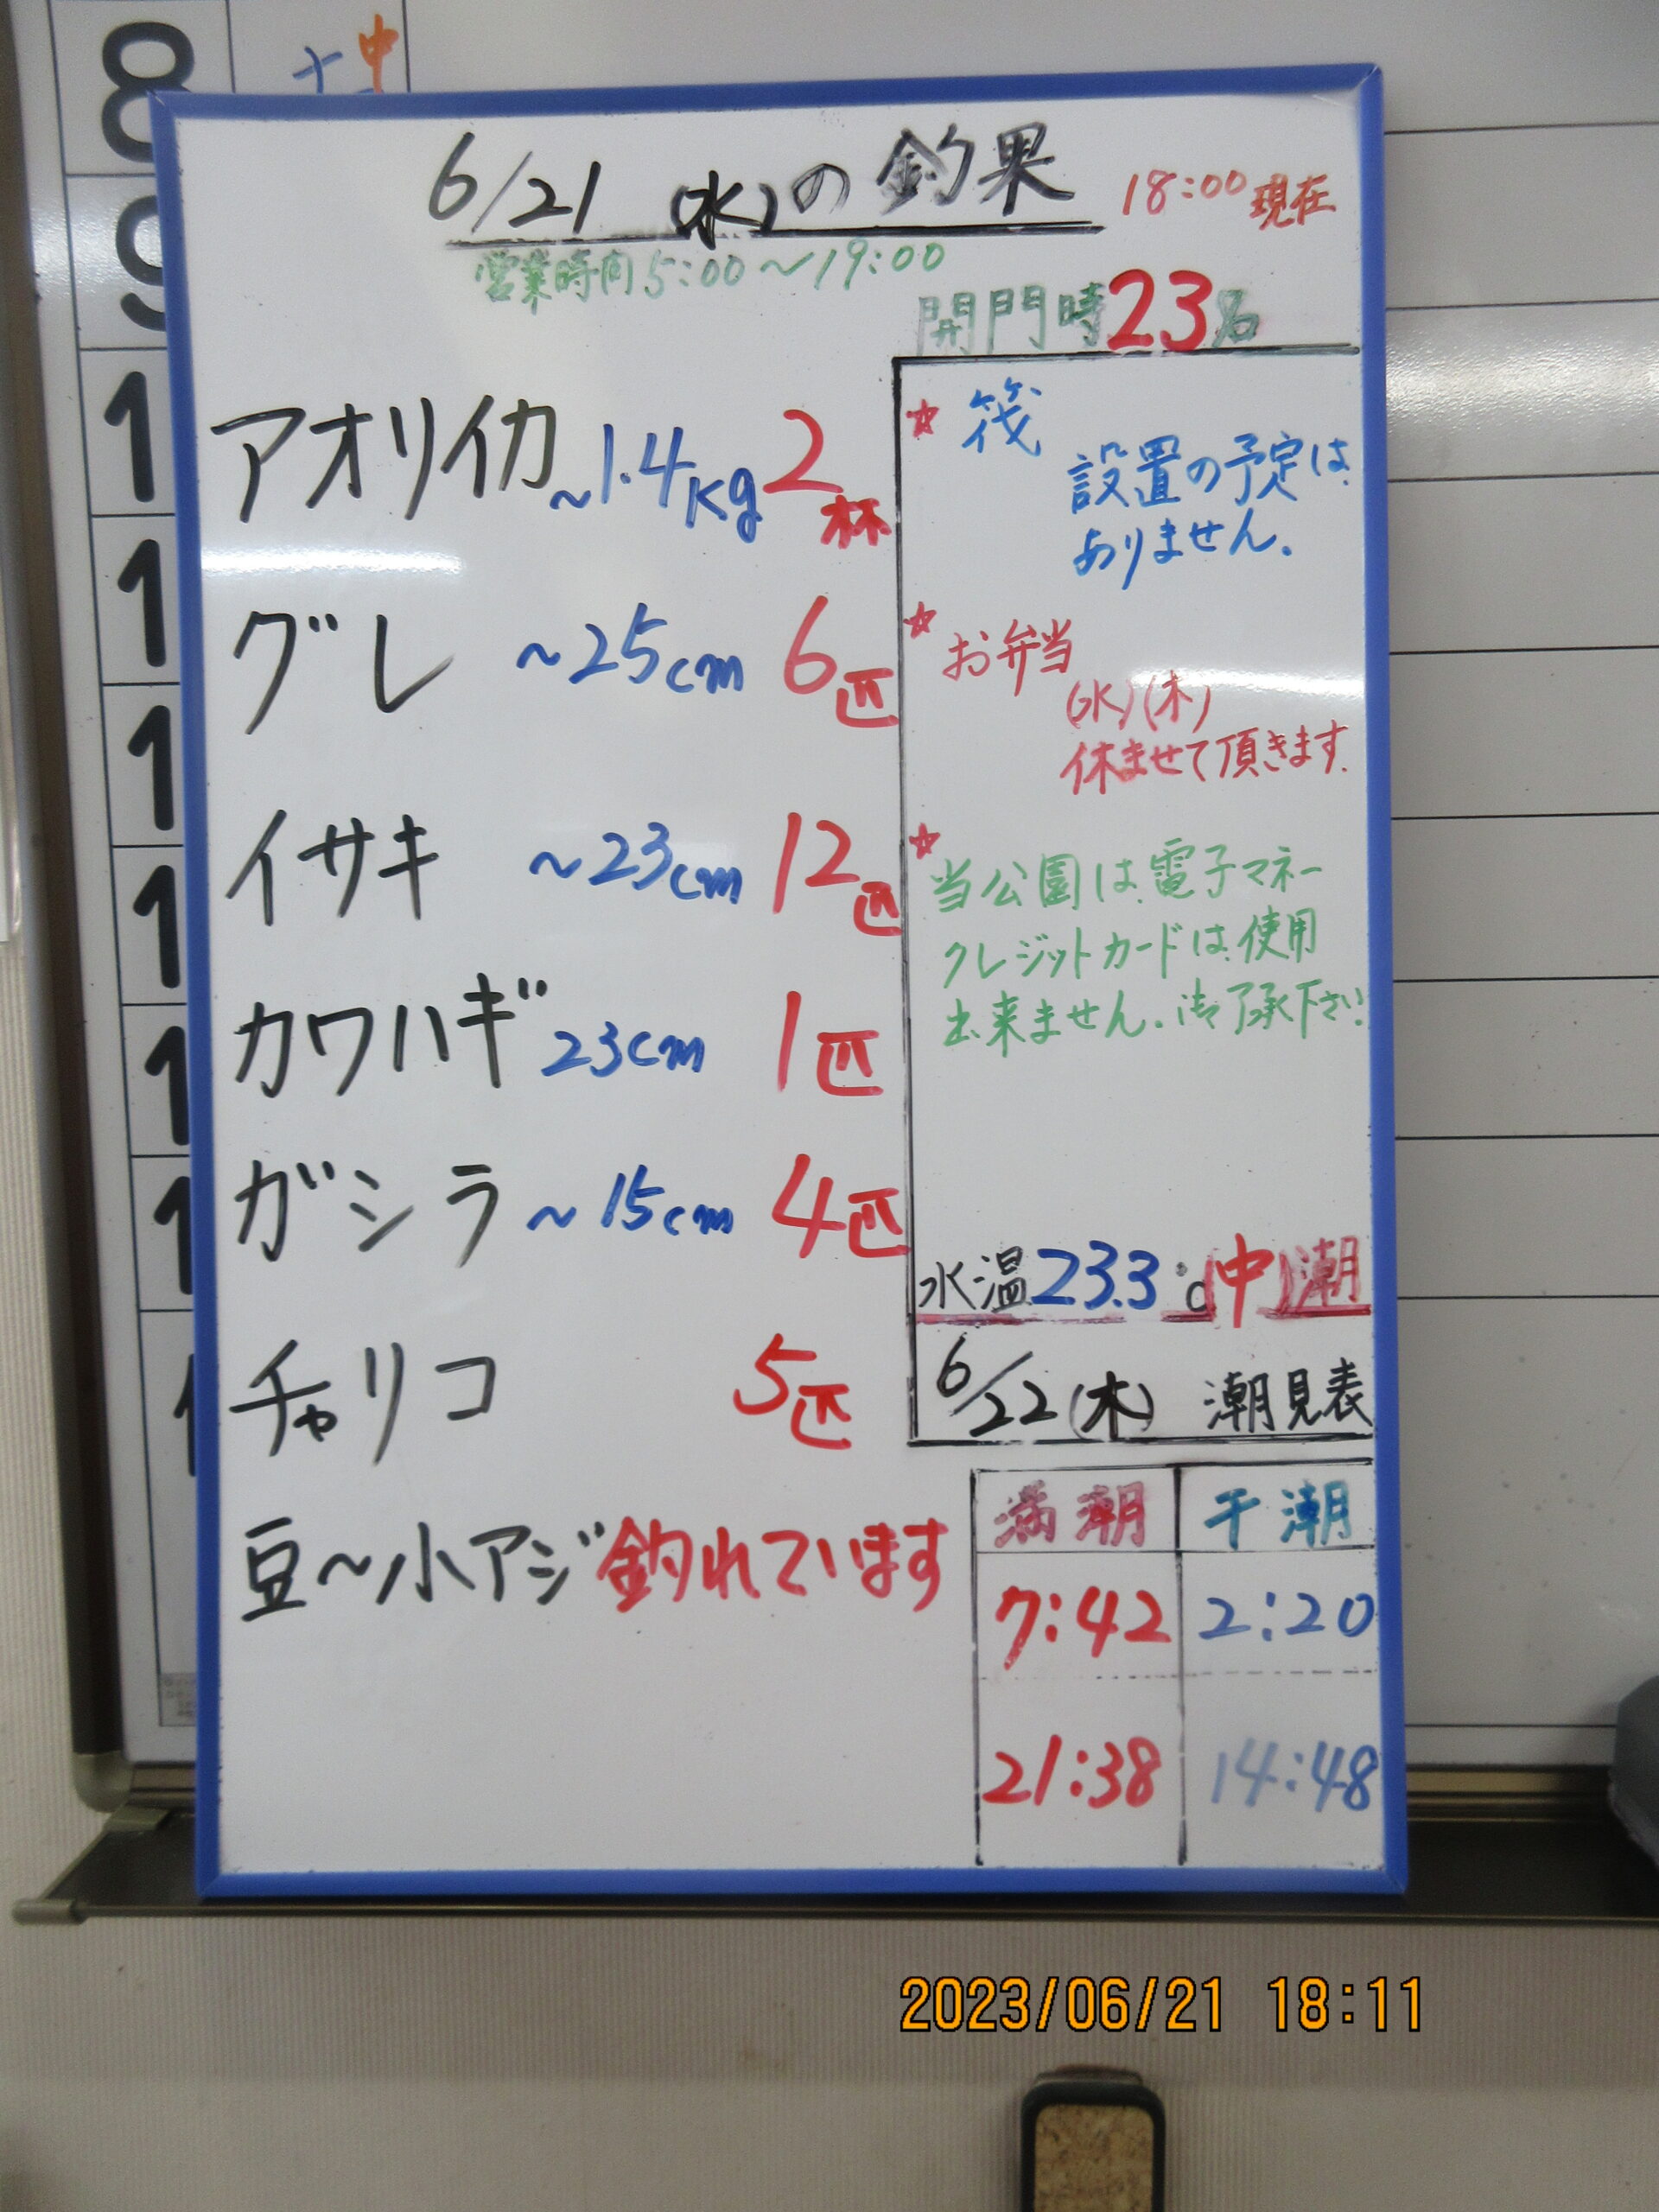 8
中
9
1
1
1
1
1
1
6/21 (水)の釣果
18:00現在
営業時間5:00~19:00
開門時23名
アオリイカ ~1.4Kg 2杯
グレ ~25cm 6匹
イサキ ~23cm 12匹
カワハギ 23cm 1匹
ガシラ ~15cm 4匹
チャリコ 5匹
豆~小アジ釣れています
☆筏
設置の予定は
ありません.
☆お弁当
(水)(木)
休ませて頂きます.
☆当公園は電子マネー
クレジットカードは使用
出来ません.御了承下さい.
水温23.3℃(中)潮
6/22(木) 潮見表
満潮 干潮
7:42 2:20
21:38 14:48
2023/06/21 18:11